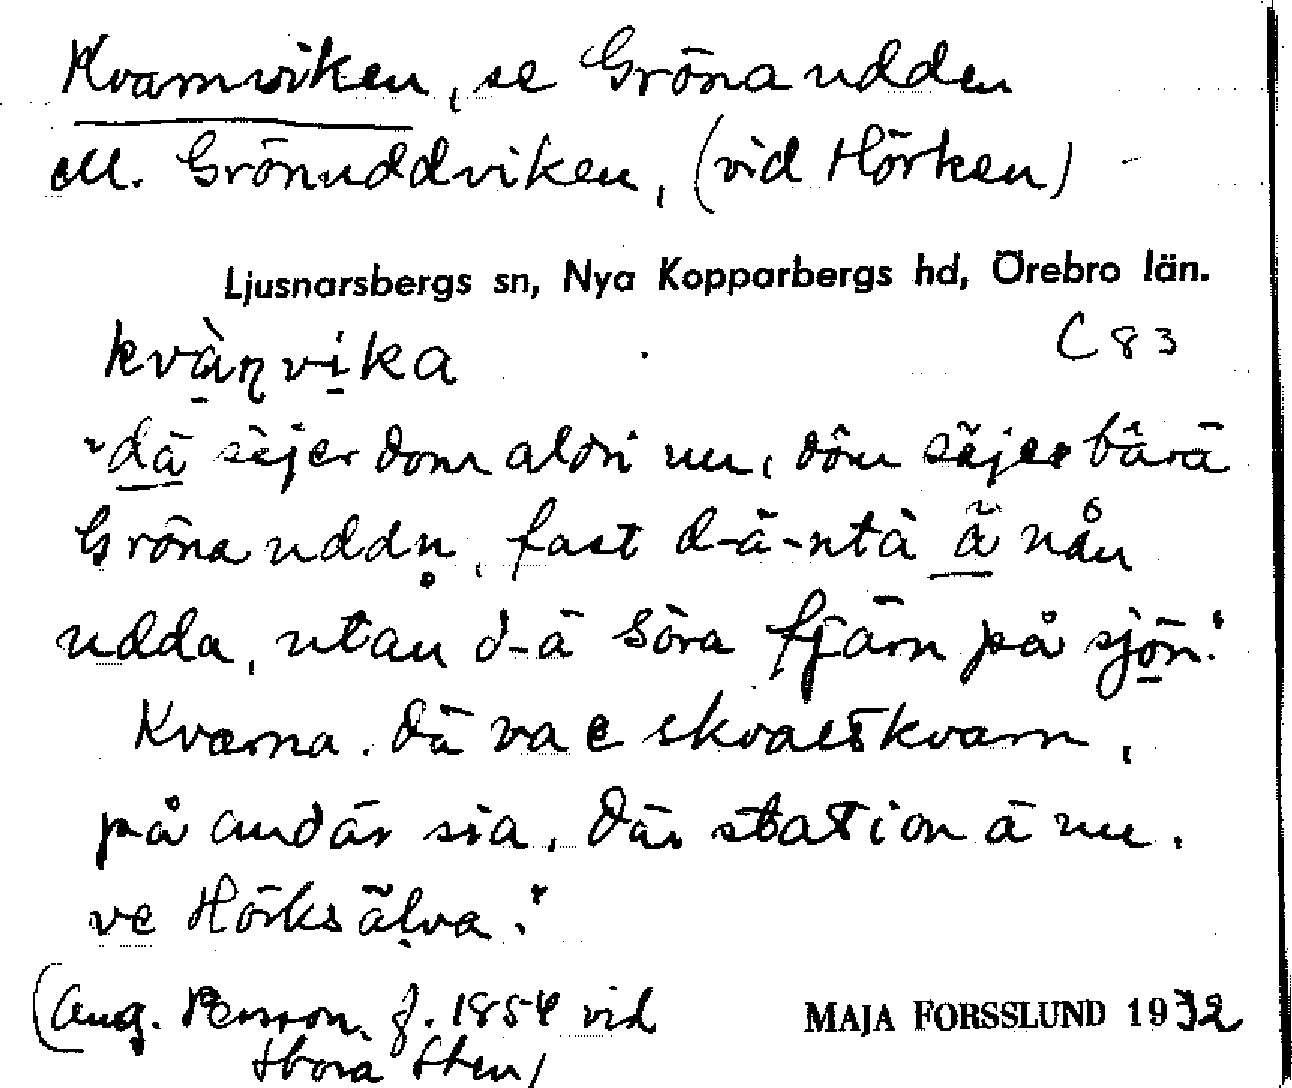 Kvarnviken, se Gröna udden
ell. Grönuddviken, (vid Hörken)
Ljusnarsbergs sn, Nya Kopparbergs hd, Örebro län.
kvàṇvika
C 83
"dä säjer dom aldri nu, dôm säjer bârä
Gröna uddn̥, fast d-ä-ntä ä nån
udda, utan d-ä söra fjärn på sjön"
Kvarna. Dä va e skvaltkvarn,
på andär sia, där station ä nu.
ve Hörksälva."
(Aug. Persson, f. 1854 vid
Stora Sten)
MAJA FORSSLUND 1932